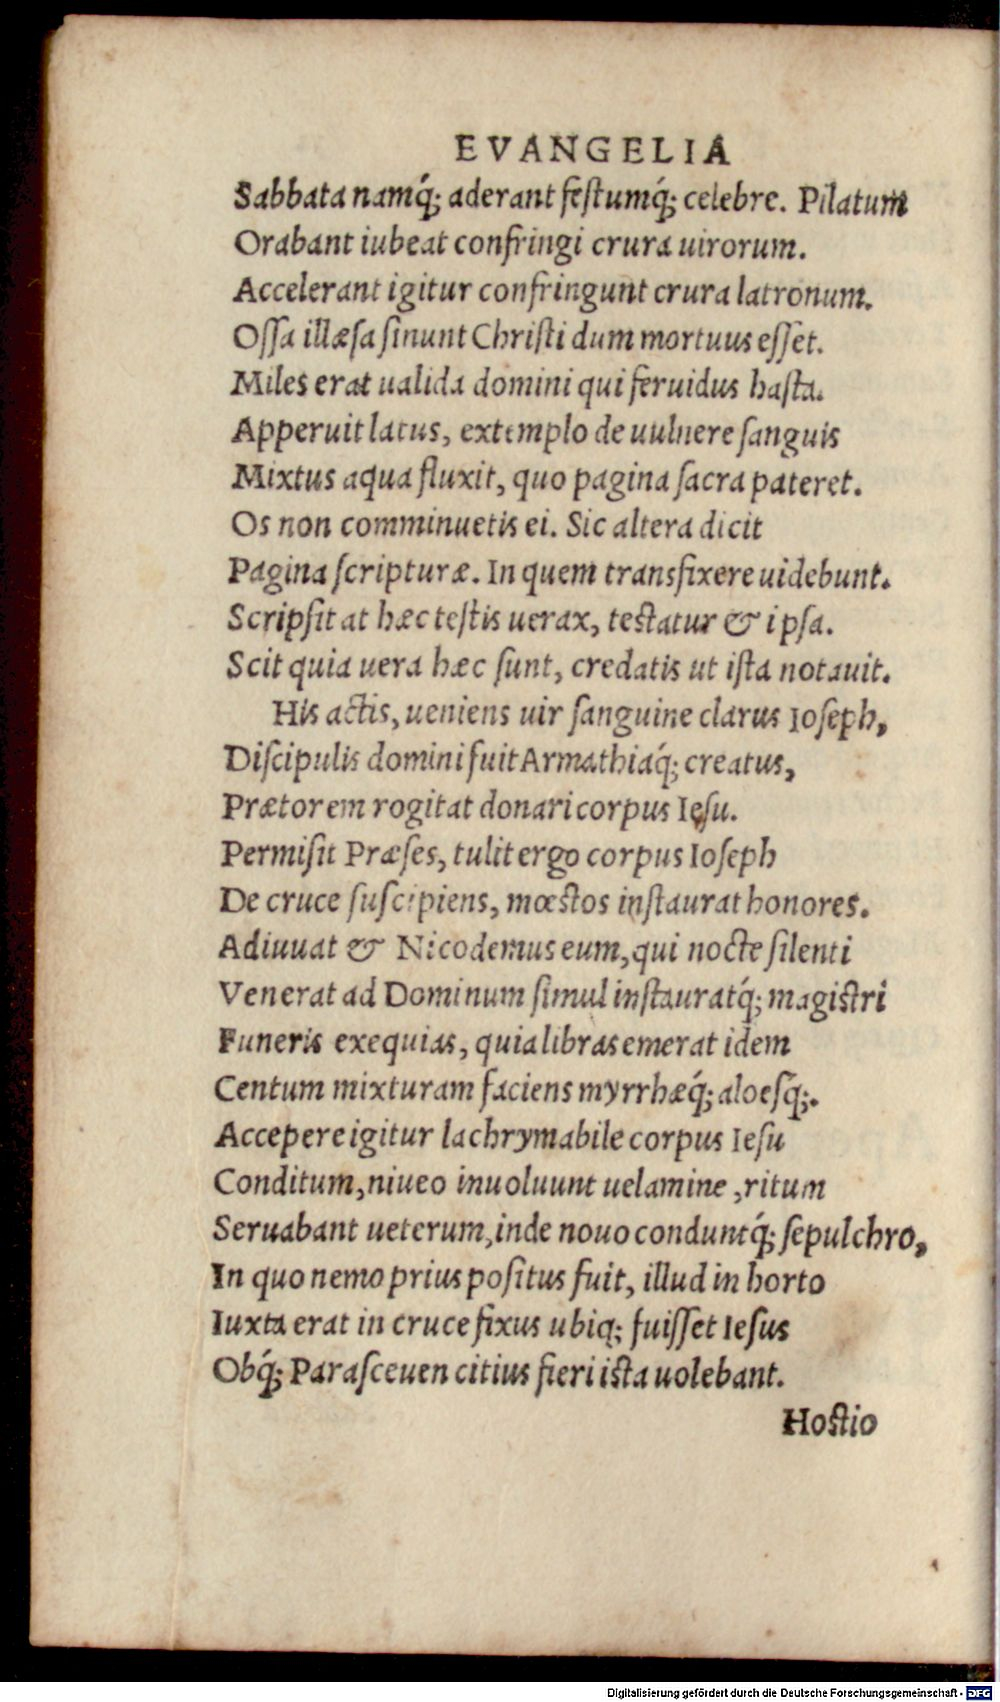 EVANGELIA
Sabbata namq́; aderant feſtumq́; celebre. Pilatum
Orabant iubeat confringi crura uirorum.
Accelerant igitur confringunt crura latronum.
Oſſa illæſa ſinunt Chriſti dum mortuus eſſet.
Miles erat ualida domini qui feruidus haſta.
Apperuit latus, extemplo de uulnere ſanguis
Mixtus aqua fluxit, quo pagina ſacra pateret.
Os non comminuetis ei. Sic altera dicit
Pagina ſcripturæ. In quem transfixere uidebunt.
Scripſit at hæc teſtis uerax, teſtatur & ipſa.
Scit quia uera hæc ſunt, credatis ut iſta notauit.
His actis, ueniens uir ſanguine clarus Ioſeph,
Diſcipulis domini fuit Armathiaq́; creatus,
Prætorem rogitat donari corpus Ieſu.
Permiſit Præſes, tulit ergo corpus Ioſeph
De cruce ſuſcipiens, mœſtos inſtaurat honores.
Adiuuat & Nicodemus eum, qui nocte ſilenti
Venerat ad Dominum ſimul inſtauratq́; magiſtri
Funeris exequias, quia libras emerat idem
Centum mixturam faciens myrrhæq́; aloeſq́;.
Accepere igitur lachrymabile corpus Ieſu
Conditum, niueo inuoluunt uelamine, ritum
Seruabant ueterum, inde nouo conduntq́; ſepulchro,
In quo nemo prius poſitus fuit, illud in horto
Iuxta erat in cruce fixus ubiq; fuiſſet Ieſus
Obq́; Paraſceuen citius fieri iſta uolebant.
Hoſtio
Digitalisierung gefördert durch die Deutsche Forschungsgemeinschaft - DFG